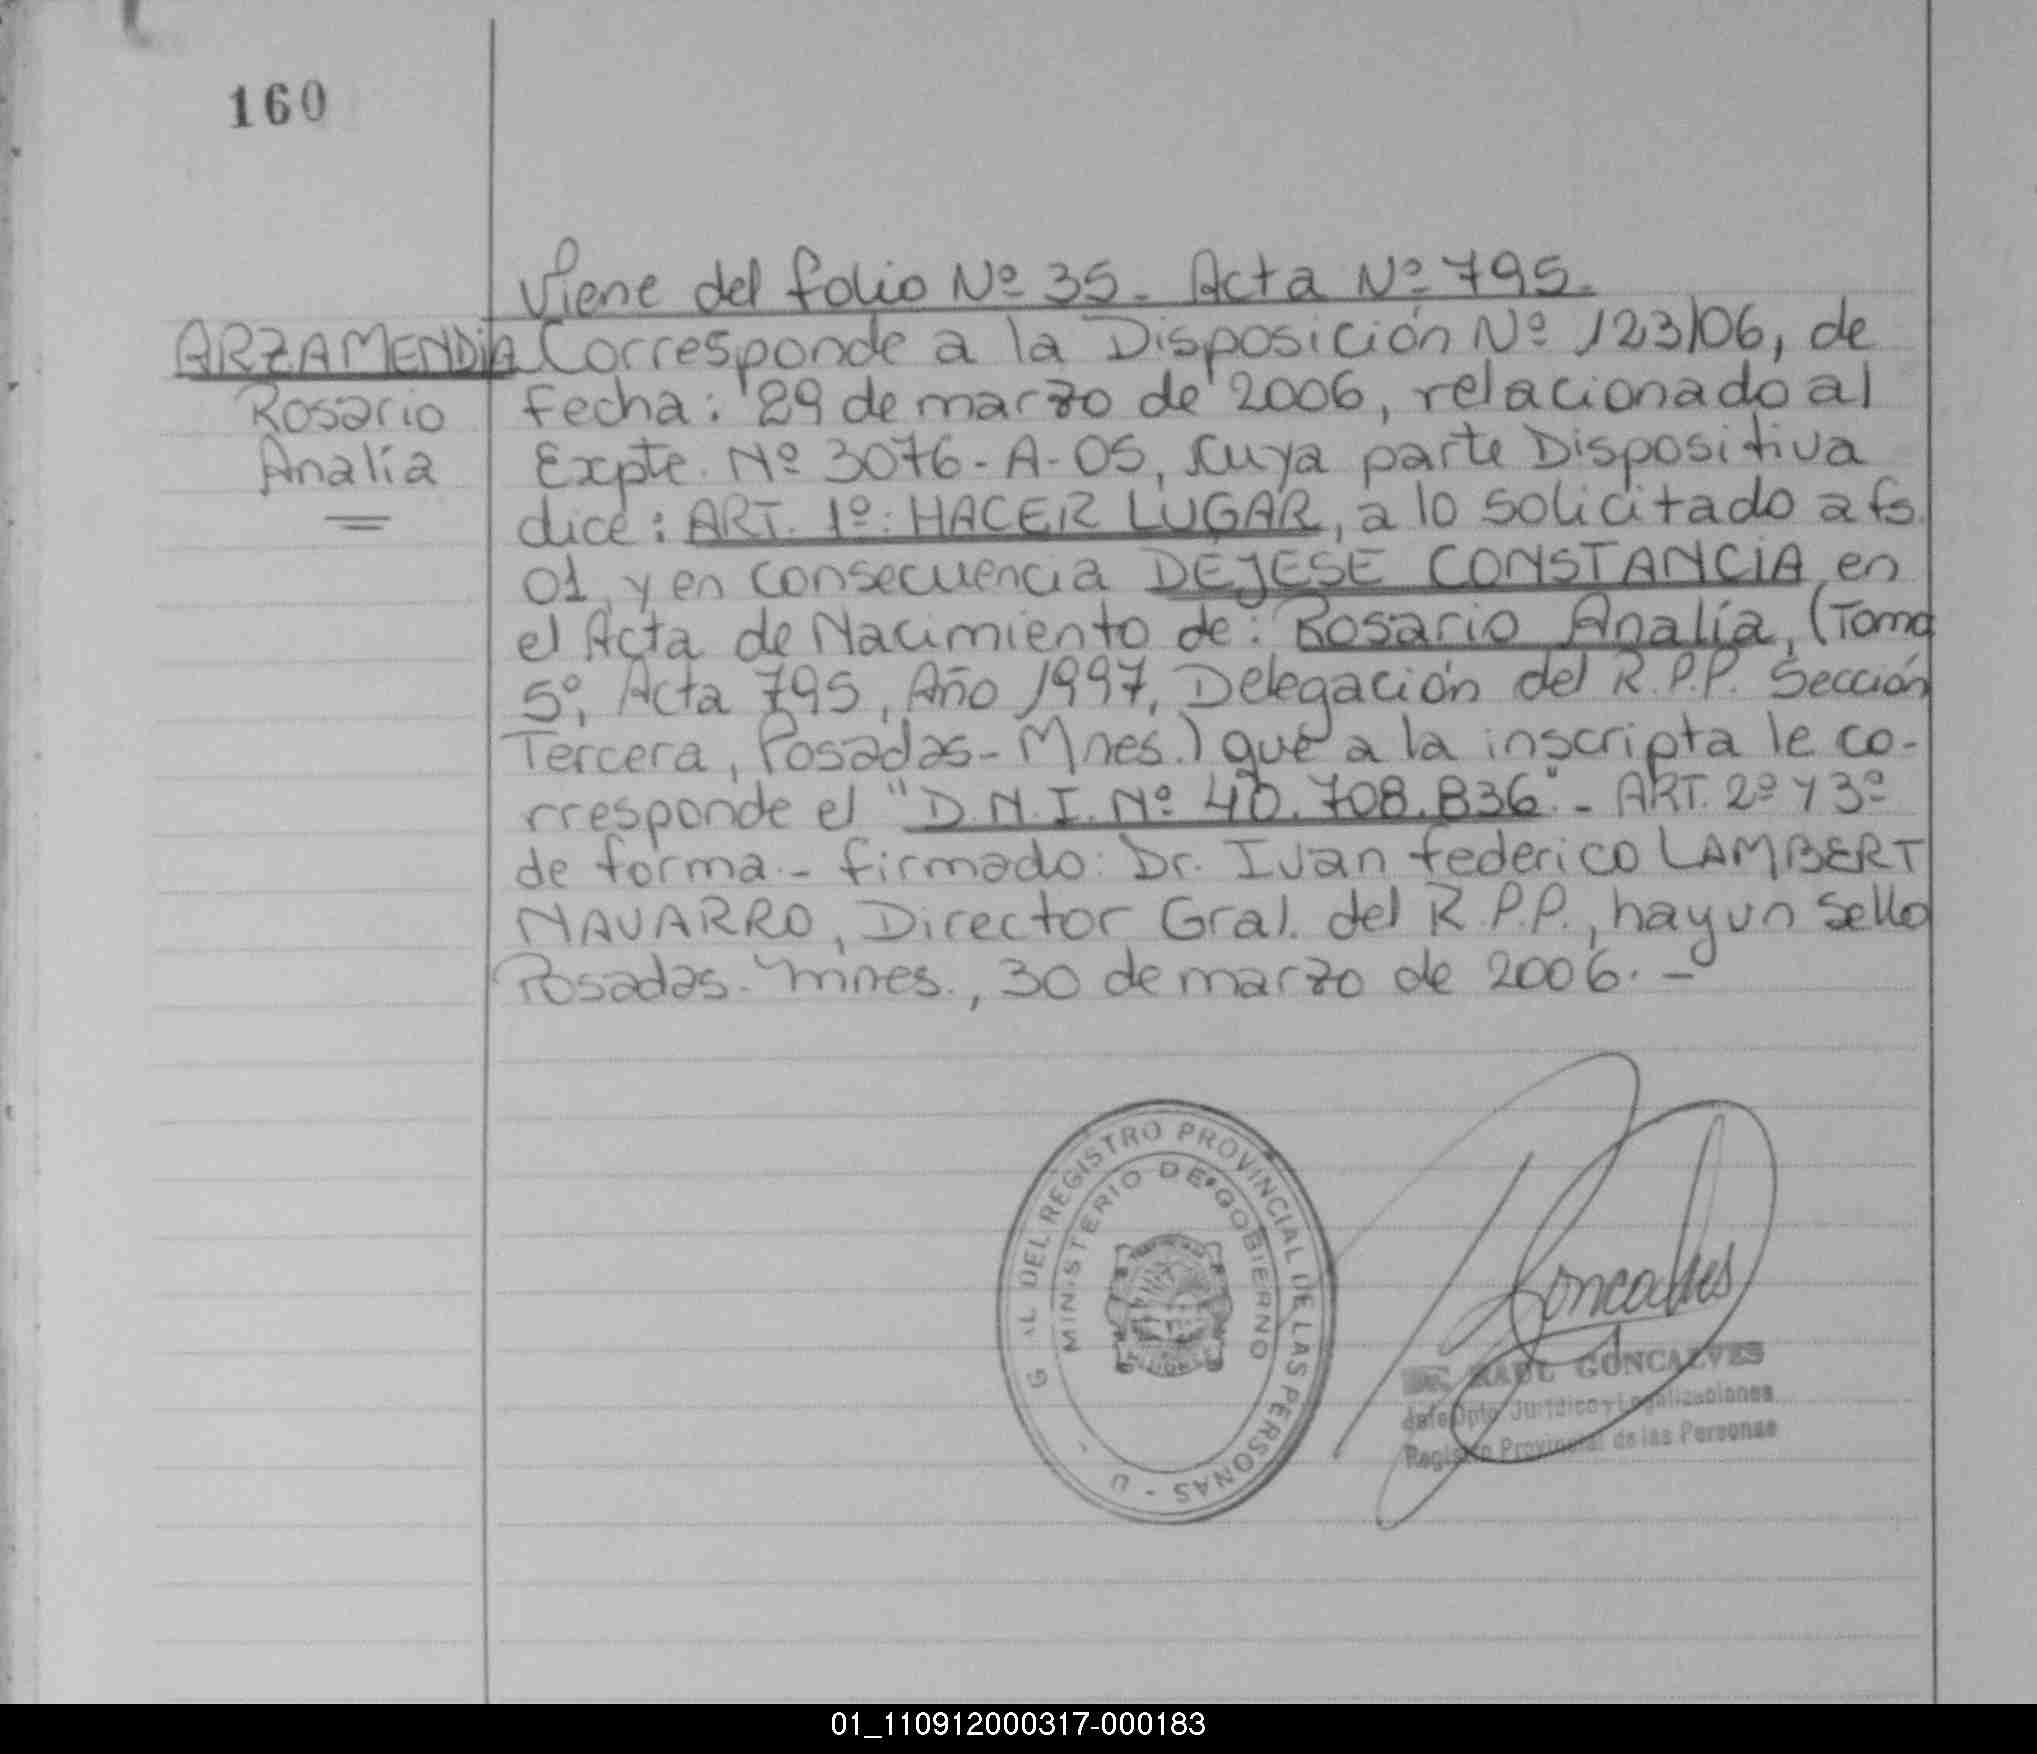 160
Viene del folio Nº 35. Acta Nº 795.
ARZAMENDIA
Rosario
Analía
Corresponde a la Disposición Nº 123/06, de
fecha: 29 de marzo de 2006, relacionado al
Expte. Nº 3076-A-05, cuya parte Dispositiva
dice: ART. 1º: HACER LUGAR, a lo solicitado a fs.
01, y en consecuencia DEJESE CONSTANCIA en
el Acta de Nacimiento de: Rosario Analía, (Tomo
5º, Acta 795, Año 1997, Delegación del R.P.P. Sección
Tercera, Posadas-Mnes.) que a la inscripta le co-
rresponde el "D.N.I. Nº 40.708.836".- ART. 2º y 3º
de forma.- firmado: Dr. Ivan federico LAMBERT
NAVARRO, Director Gral. del R.P.P., hay un Sello
Posadas-Mnes., 30 de marzo de 2006.-
G AL DEL REGISTRO PROVINCIAL DE LAS PERSONAS - U -
MINISTERIO DE GOBIERNO
Goncalves
Dr. RAUL GONCALVES
Jefe Dpto. Jurídico y Legalizaciones
Registro Provincial de las Personas
01_110912000317-000183